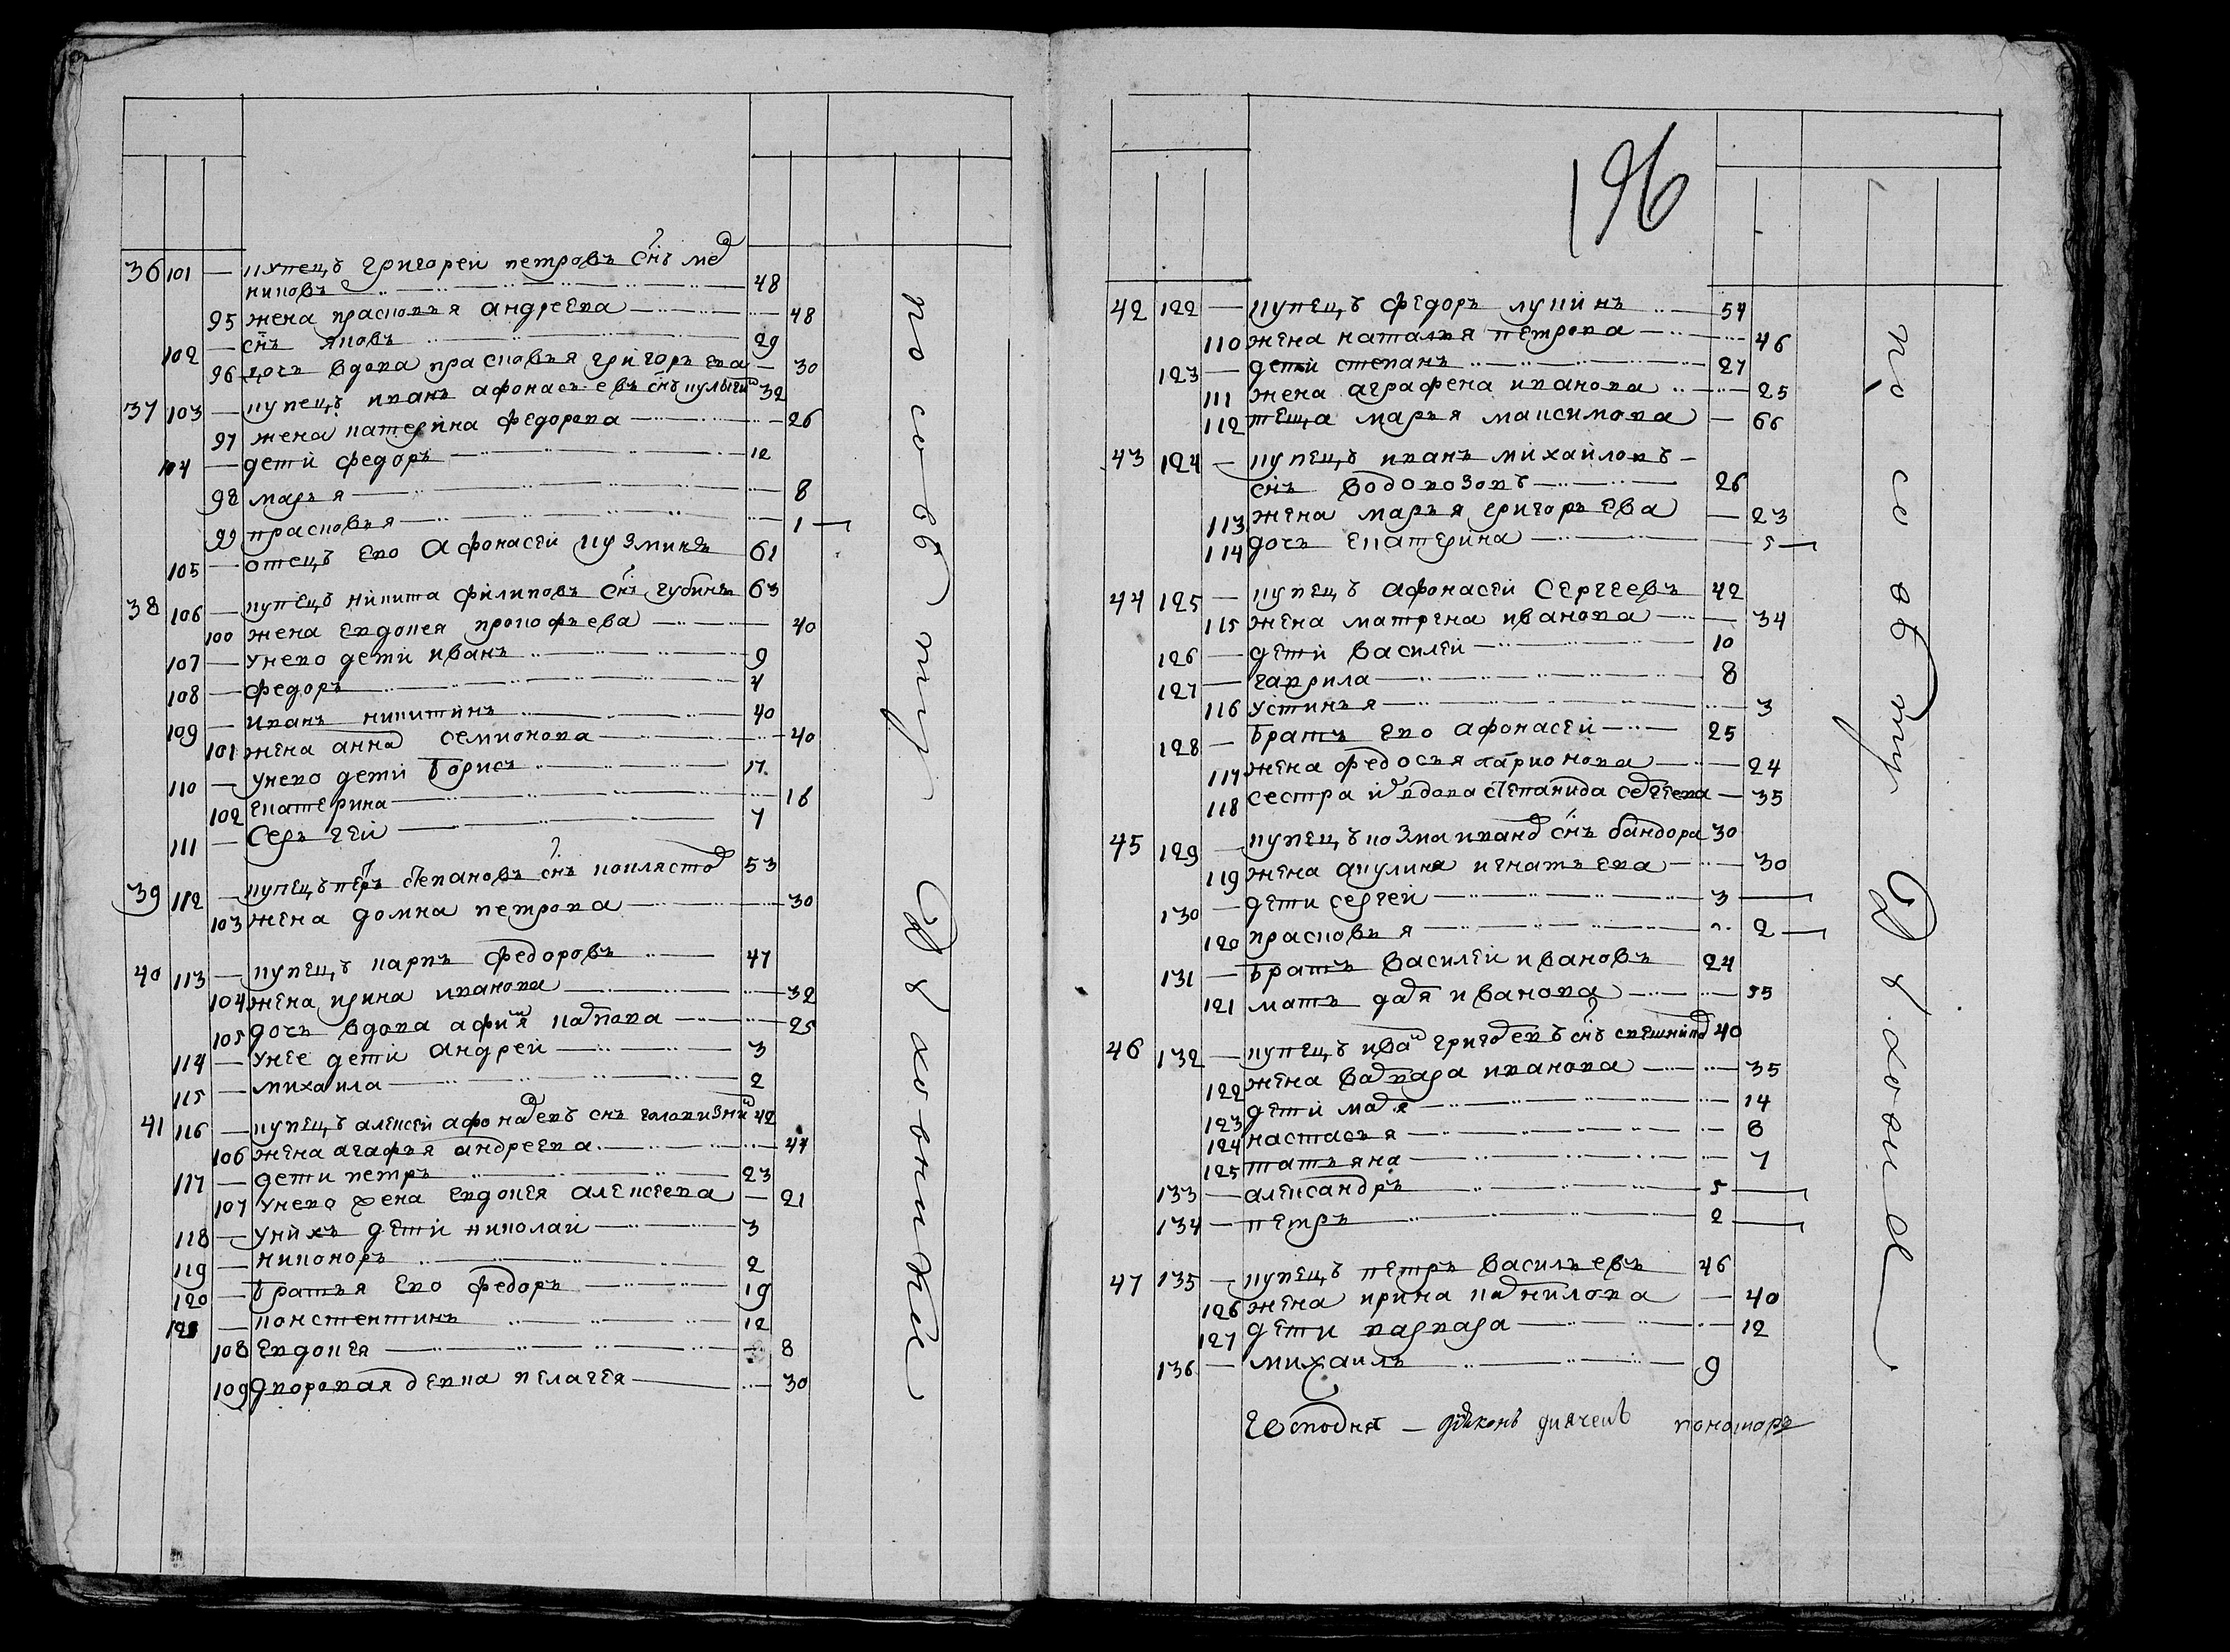 36 101 — купецъ григорей петровъ снъ мѣ
никовъ 48
95 жена прасковя андреева 48
102 — снъ яковъ 29
96 дочь вдова прасковья григорьева 30
37 103 — купецъ иванъ афонасьевъ снъ кулыгин 32
97 жена катерина федорова 26
104 — дети федоръ 12
98 марья 8
99 прасковья 1
105 — отецъ ево афонасеи кузминъ 61
38 106 — купецъ никита филиповъ снъ губинъ 63
100 жена евдокея прокофьева 40
107 — у нево дети иванъ 9
108 — федоръ 4
109 — иванъ никитинъ 40
101 жена анна семионова 40
110 — у нево дети борисъ 17
102 екатерина 16
111 — серьгей 7
39 112 — купецъ петръ степановъ снъ 53
103 жена домна петрова 30
40 113 — купецъ карпъ федоровъ 47
104 жена ирина иванова 32
105 дочь вдова афимя карпова 25
114 — у нее дети андреи 3
115 — михаила 2
41 116 — купецъ алексеи афонасевъ снъ головизнин 42
106 жена агафья андреева 44
117 — дети петръ 23
107 у нево жена евдокея алексеева 21
118 — у нихъ дети николаи 3
119 — никоноръ 2
120 — братья ево федоръ 19
121 — констентинъ 12
108 евдокея 8
109 дворовая девка пелагея 30
по сеоту в хожние
196
42 122 — купецъ федоръ лунинъ 54
110 жена наталья петрова 46
123 — дети степанъ 27
111 жена аграфена иванова 25
112 теща марья максимова 66
43 124 — купецъ иванъ михаиловъ
снъ водовозовъ 26
113 жена марья григорьева 23
114 дочь екатерина 5
44 125 — купецъ афонасеи сергеевъ 42
115 жена матрена иванова 34
126 — дети василеи 10
127 — гаврила 8
116 устинья 3
128 — братъ ево афонасеи 25
117 жена федосья ларионова 24
118 сестра вдова степанида сергеева 35
45 129 — купецъ козма иванов снъ бандора 30
119 жена акулина игнатьева 30
130 — дети сергеи 3
120 прасковья 2
131 — братъ василеи ивановъ 24
121 мать даря иванова 55
46 132 — купецъ иван григоревъ снъ 40
122 жена варвара иванова 35
123 дети маря 14
124 настасья 8
125 татьяна 7
133 — александръ 5
134 — петръ 2
47 135 — купецъ петръ васильевъ 46
126 жена ирина карнилова 40
127 дети варвара 12
136 — михаилъ 9
дьяконъ дьячекъ пономарь